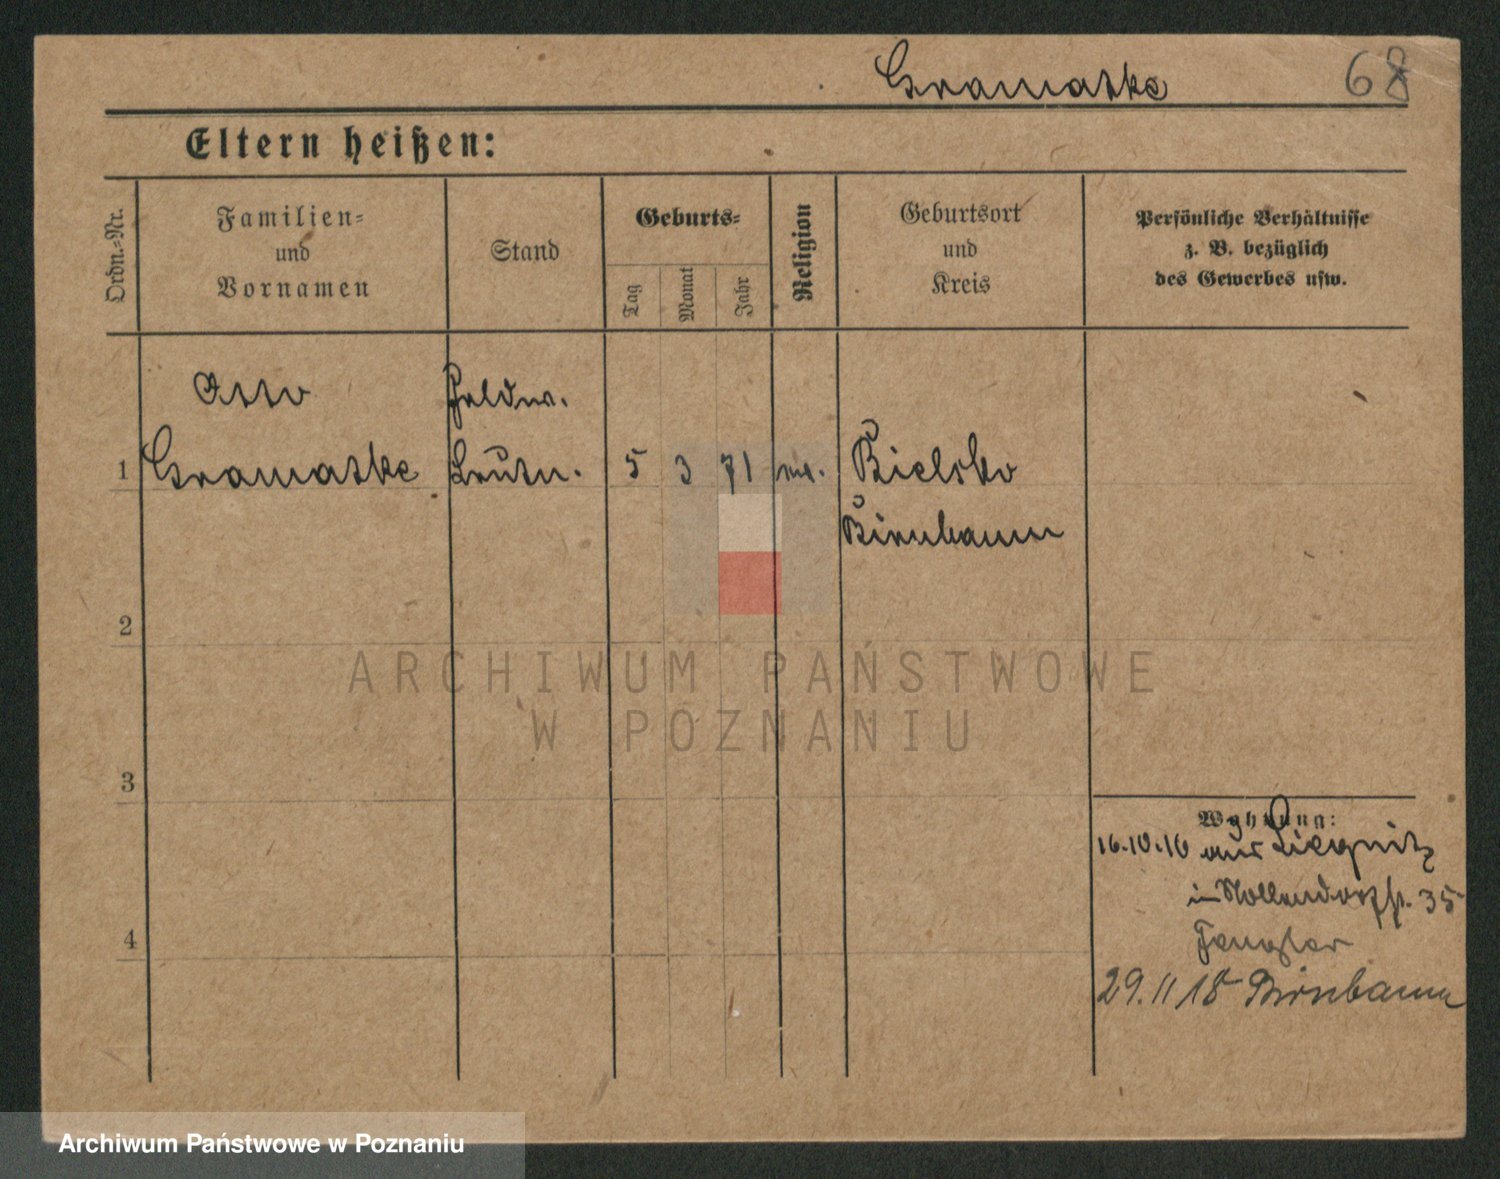 Gramatke 68
Eltern heißen:
Ordn.-Nr.
Familien-
und
Vornamen
Stand
Geburts-
Tag
Monat
Jahr
Religion
Geburtsort
und
Kreis
Persönliche Verhältnisse
z. B. bezüglich
des Gewerbes usw.
Otto Feldw.
1 Gramatke Leutn. 5 3 71 Bielsko
Birnbaum
2
3
4
Wohnung:
16.10.16 aus Liegnitz
in Nollendorfstr. 35
29.11 18 Birnbaum
ARCHIWUM PAŃSTWOWE
W POZNANIU
Archiwum Państwowe w Poznaniu